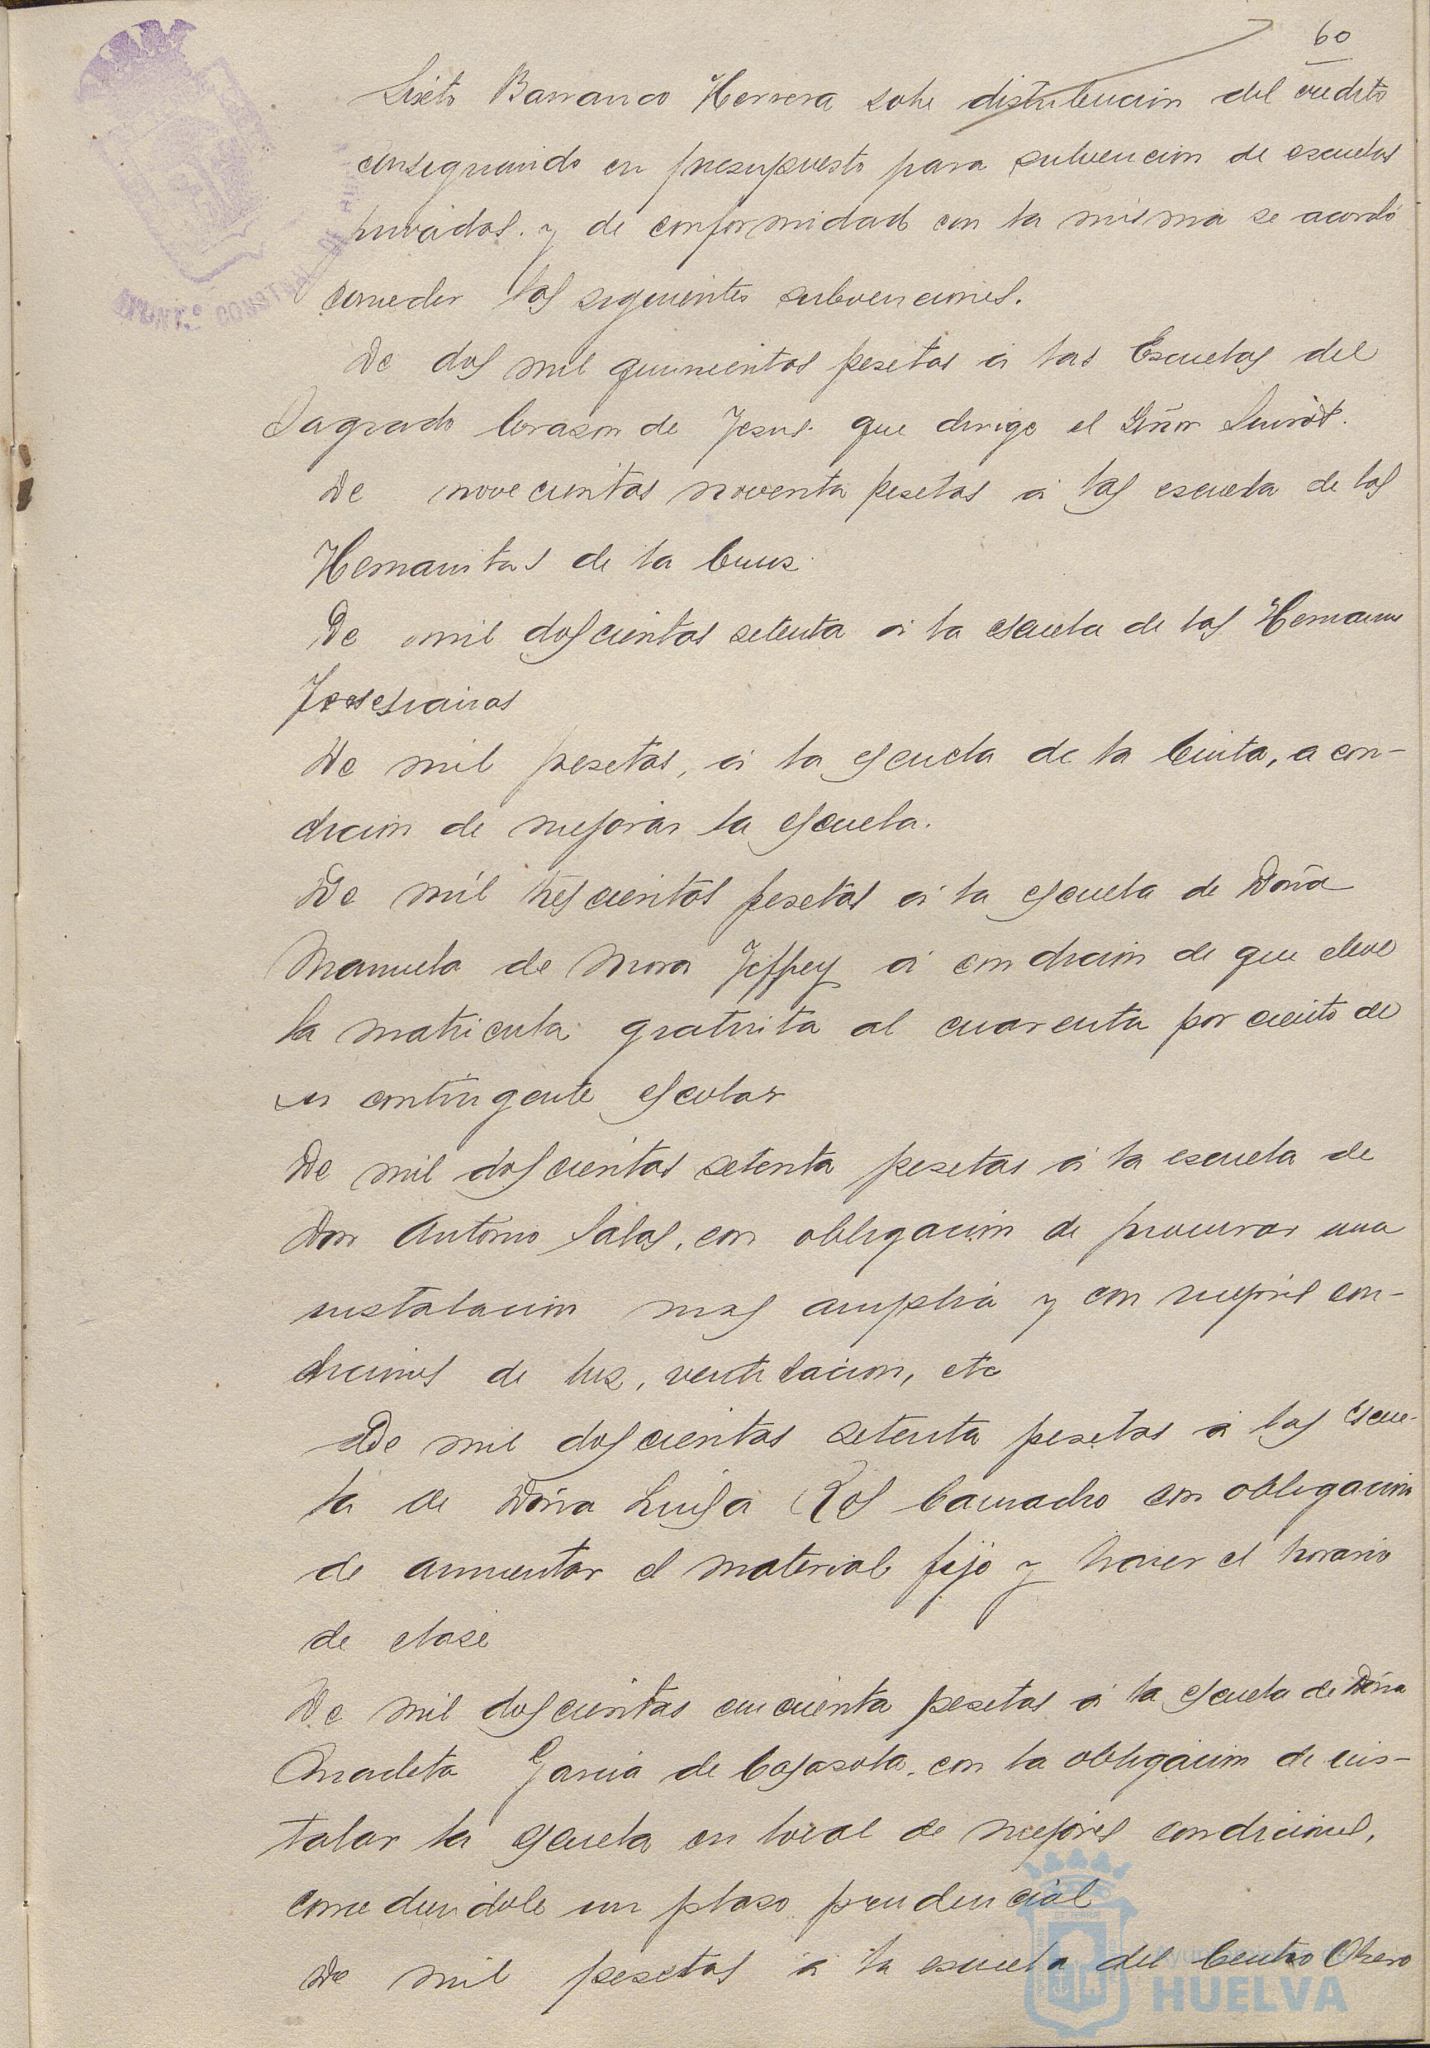 60
Sixto Barranco Herrera sobre distribucion del credito
consignando en presupuesto para subvencion de escuelas
privadas. y de conformidad con la misma se acordó
conceder las siguientes subvenciones.
De dos mil quinientas pesetas á las Escuelas del
Sagrado Corazon de Jesus que dirige el Señor Siurot.
De novecientas noventa pesetas á las escuela de las
Hemanitas de la Cruz
De mil doscientas setenta á la escuela de las Hemanas
Teresianas
De mil pesetas, á la escuela de la Cinta, a con-
dicion de mejorar la escuela.
De mil trescientas pesetas á la escuela de Doña
Manuela de Mora Jeffrey á condicion de que eleve
la matricula gratuita al cuarenta por ciento de
su contingente escolar
De mil doscientas setenta pesetas á la escuela de
Don Antonio Salas, con obligacion de procurar una
instalacion mas amplia y con mejores con-
diciones de luz, ventilacion, etc
De mil doscientas setenta pesetas á las escue-
la de Doña Luisa Ros Camacho con obligacion
de aumentar el material fijo y hacer el horario
de clase
De mil doscientas cincuenta pesetas á la escuela de Doña
Garcia de Casasola, con la obligacion de ins-
talar la escuela en local de mejores condiciones,
concediendole un plazo prudencial
De mil pesetas á la escuela del Centro Obrero
AYUNT.º CONSTNAL DE HUELVA
Ayuntamiento de
HUELVA